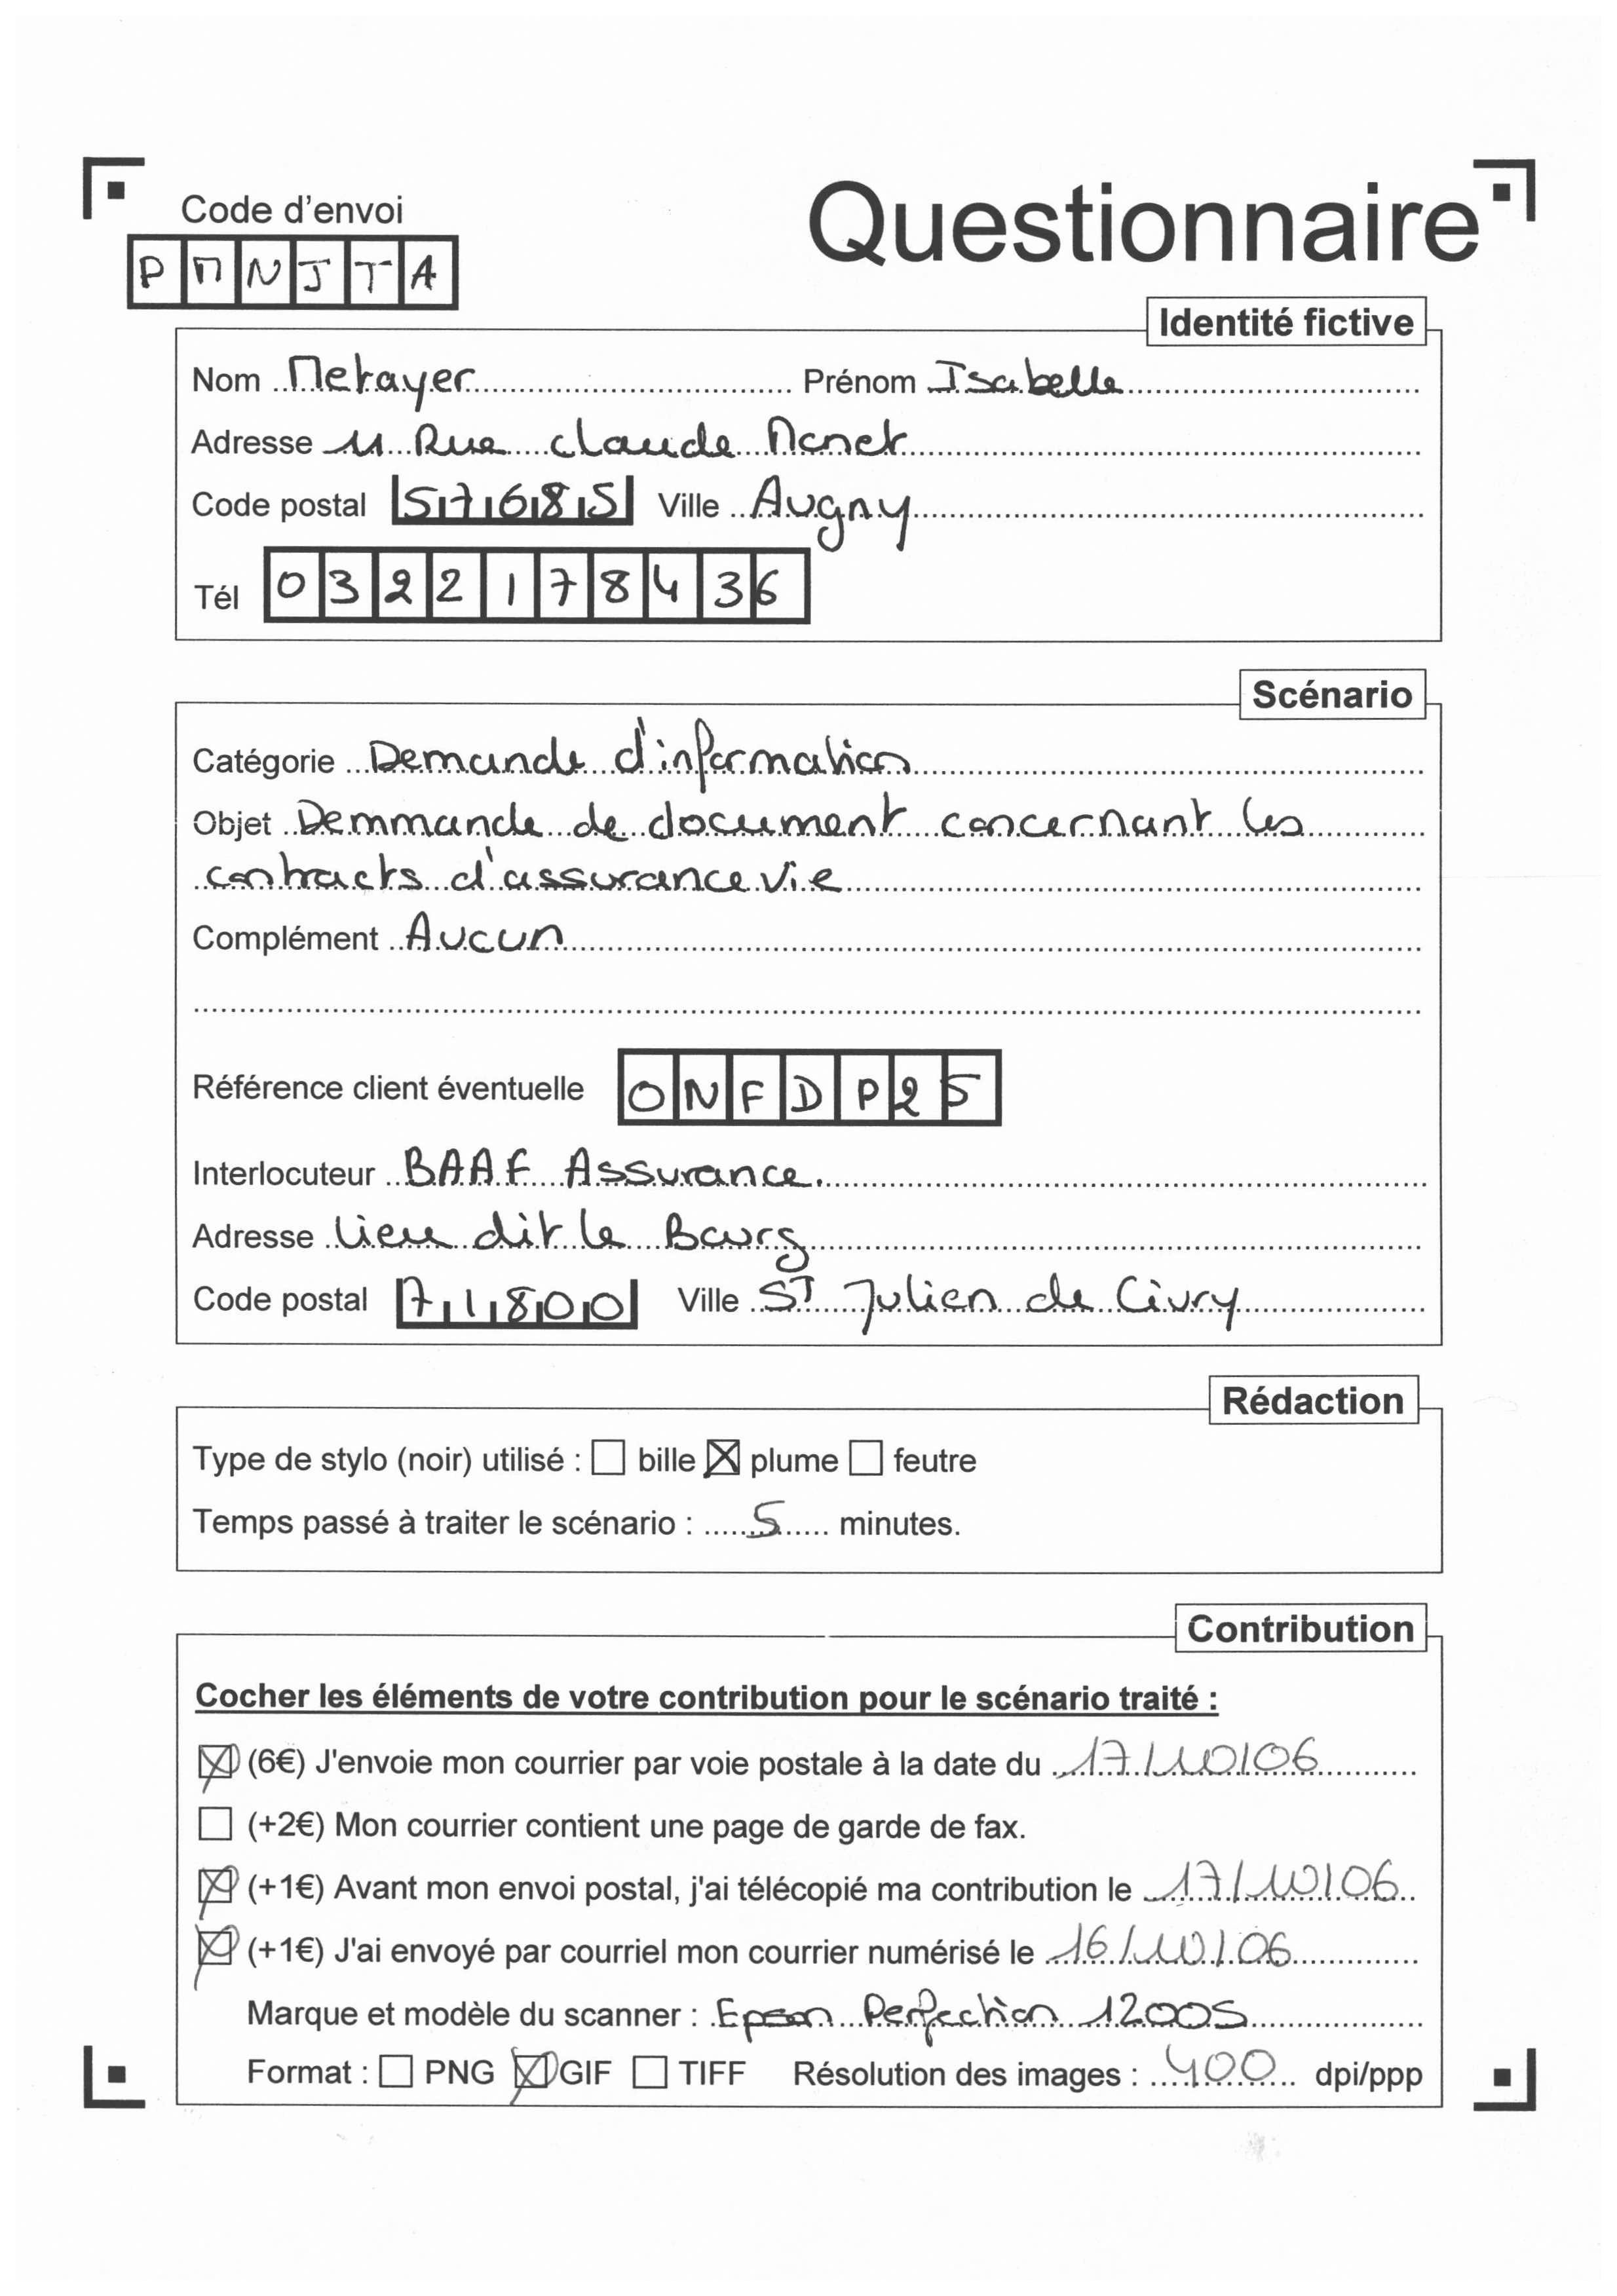 Code d'envoi
Questionnaire
PMNJTA
Identité fictive
Nom Metayer Prénom Isabelle
Adresse 11 Rue claude Monet
Code postal 57685 Ville Augny
Tél 0322178436
Scénario
Catégorie Demande d'information
Objet Demmande de document concernant les
contracts d'assurance vie
Complément Aucun
Référence client éventuelle ONFDP25
Interlocuteur BAAF Assurance.
Adresse lieu dit le Bourg
Code postal 71800 Ville ST Julien de Civry
Rédaction
Type de stylo (noir) utilisé : ☐ bille ☒ plume ☐ feutre
Temps passé à traiter le scénario : 5 minutes.
Contribution
Cocher les éléments de votre contribution pour le scénario traité :
☒ (6€) J'envoie mon courrier par voie postale à la date du 17/10/06
☐ (+2€) Mon courrier contient une page de garde de fax.
☒ (+1€) Avant mon envoi postal, j'ai télécopié ma contribution le 17/10/06
☒ (+1€) J'ai envoyé par courriel mon courrier numérisé le 16/10/06
Marque et modèle du scanner : Epson Perfection 1200S
Format : ☐ PNG ☒ GIF ☐ TIFF Résolution des images : 400 dpi/ppp